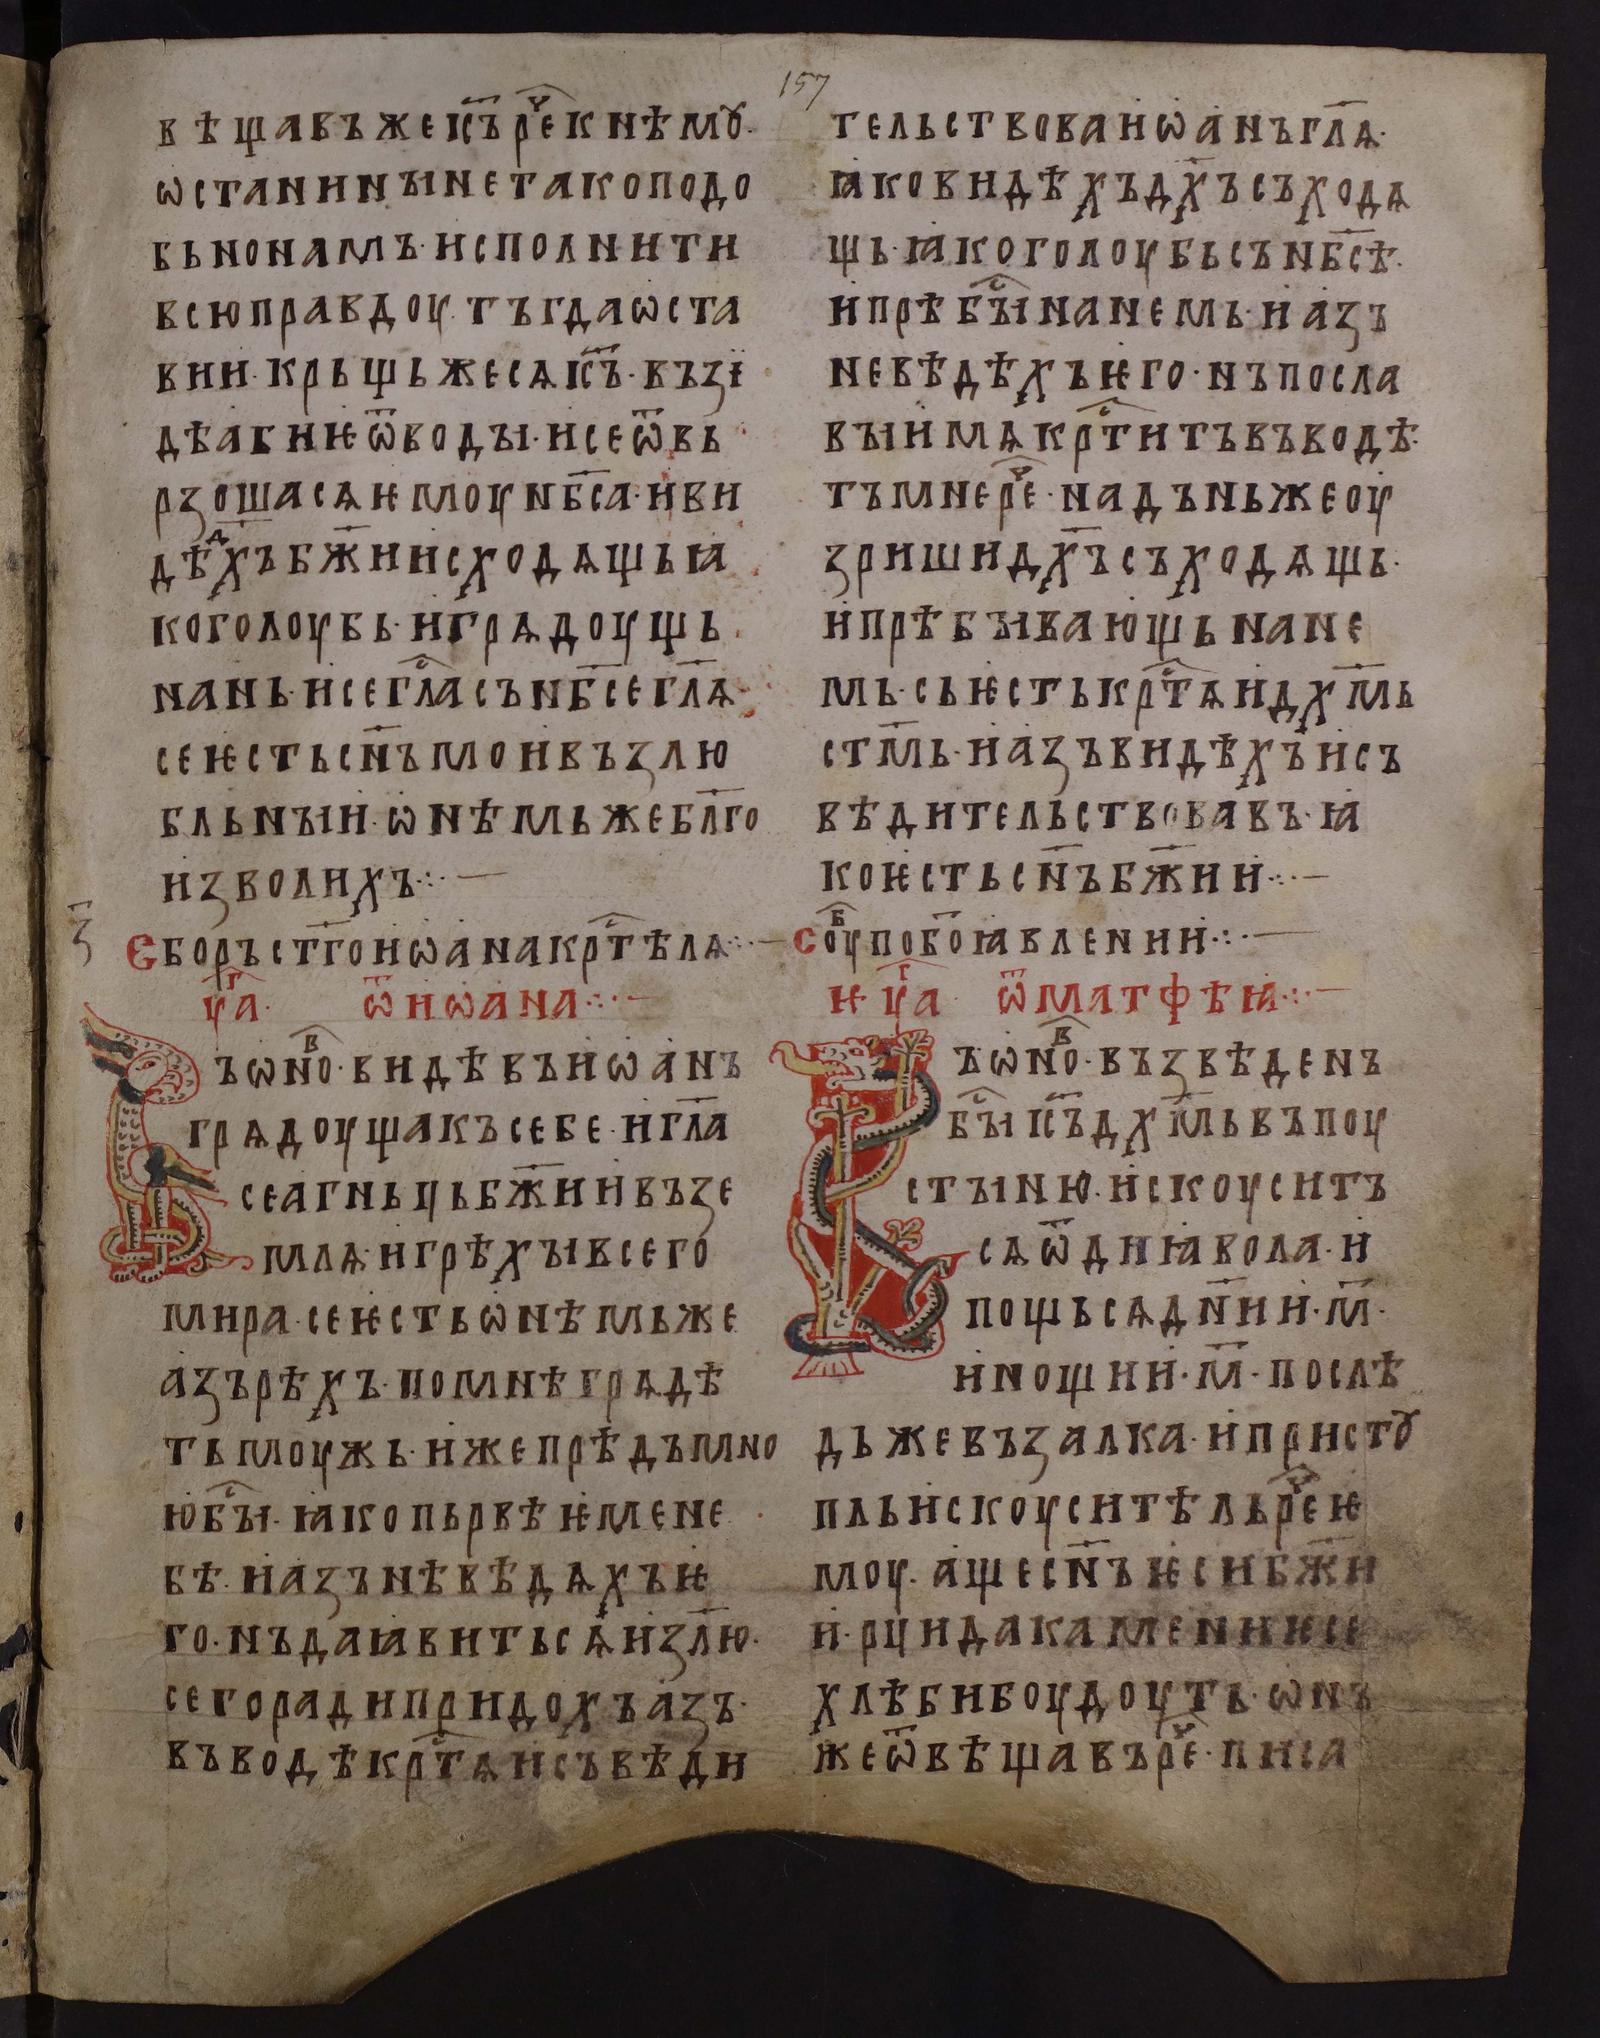 157
вѣщавъ же і҃съ рⷱ҇е к нѣмꙋ·
ѡстани нꙑнє тако подо
бьно намъ· исполнити
всю правдоу· тъгда ѡста
вии· крьщь же сѧ і҃съ· възі
дѣ абиѥ ѿ воды· и се ѿвь
рзоша сѧ ѥмоу нб҃са· и ви
дѣ дх҃ъ бж҃ии исходѧщь ꙗ
ко голоубь· и грѧдоущь
на нь· и се глⷭ҇а съ нб҃се гл҃ѧ·
се ѥсть сн҃ъ мои възлю
бльныи· ѡ нѣмьже бл҃го
изволихъ·:· —
з҃
Сборъ ст҃го иѡана крⷭ҇тѣлѧ·:· —
цⷢ҇а· ѿ иѡана·:· —
Въ ѡнⷪ҇о· видѣвъ иѡанъ
грѧдоуща къ себе· и гл҃а
се агньць бж҃ии възе
млѧ· и грѣхы всего
мира· се ѥсть ѡ нѣмьже
азъ рѣхъ· по мнѣ грѧдѣ
ть моужь· иже прѣдъ мно
ю бⷭ҇ы· ꙗко пьрвѣѥ мене
бѣ· и азъ нѣ вѣдѧхъ ѥ
го· нъ да ꙗвить сѧ из҃лю·
сего ради придохъ азъ·
въ водѣ крⷭ҇тѧ и съвѣди
тельствова иѡанъ гл҃ѧ·
ꙗко видѣхъ дх҃ъ съходѧ
щь· ꙗко голоубь съ нб҃сѣ·
и прѣбⷭ҇ы на немь· и азъ
не вѣдѣхъ ѥго· нъ пославы
въіи мѧ крⷭ҇титъ въ водѣ·
тъ мне рⷱ҇е· надъ ньже оу
зриши дх҃ъ съходѧщь·
и прѣбывающь на не
мь· сь ѥсть крⷭ҇тѧи дх҃мь
ст҃мь· и азъ видѣхъ и съ
вѣдительствовавъ· ꙗ
ко ѥсть сн҃ъ бж҃ии·:· —
Соуⷠ по бо҃ꙗвлении·:· —
ѥ· цⷢ҇а ѿ матфѣꙗ·:· —
Въ ѡнⷪ҇о· възвѣденъ
бⷭ҇ы і҃съ дх҃мь въ поу
стыню· искоусить
сѧ ѿ диꙗвола· и
пощь сѧ дн҃ии· м҃·
и нощии· м҃· послѣ
дь же възалка· и пристꙋ
пль искоуситѣль рⷱ҇е ѥ
моу· аще сн҃ъ ѥси бж҃и
и· рци да камениѥ се
хлѣби боудоуть· ѡнъ
же ѿвѣщавъ рⷱ҇е· писа